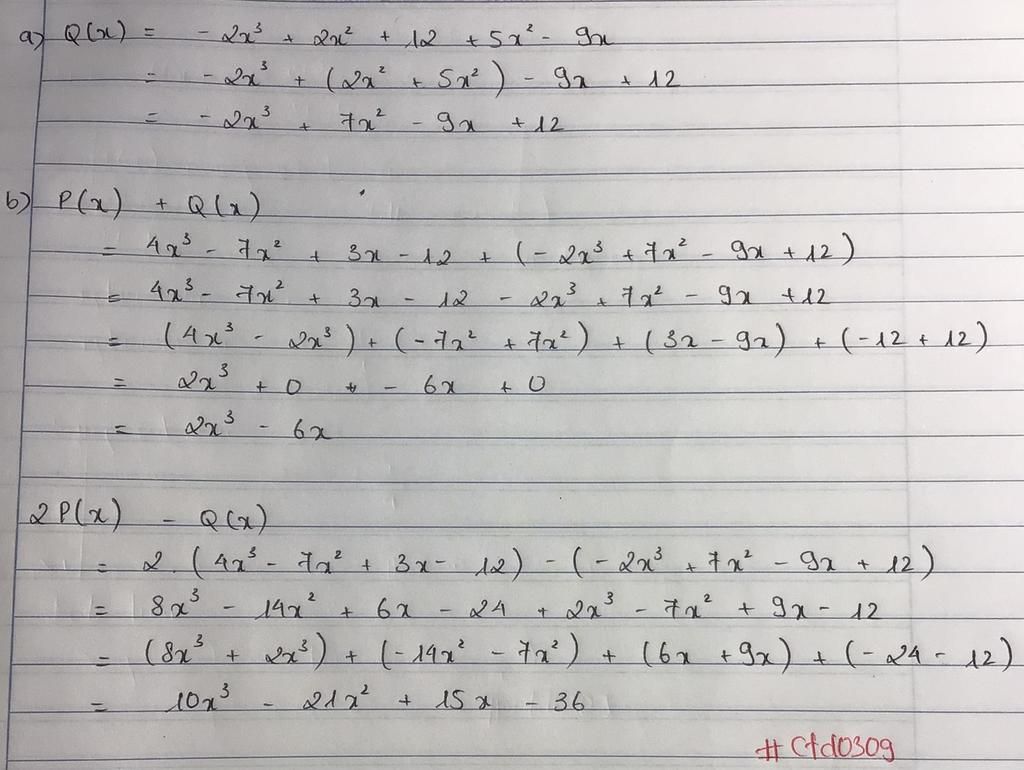 a) Q(x) = - 2x³ + 2x² + 12 + 5x² - 9x
= - 2x³ + (2x² + 5x²) - 9x + 12
= - 2x³ + 7x² - 9x + 12
b) P(x) + Q(x)
= 4x³ - 7x² + 3x - 12 + (- 2x³ + 7x² - 9x + 12)
= 4x³ - 7x² + 3x - 12 - 2x³ + 7x² - 9x + 12
= (4x³ - 2x³) + (-7x² + 7x²) + (3x - 9x) + (-12 + 12)
= 2x³ + 0 + - 6x + 0
= 2x³ - 6x
2P(x) - Q(x)
= 2. (4x³ - 7x² + 3x - 12) - (- 2x³ + 7x² - 9x + 12)
= 8x³ - 14x² + 6x - 24 + 2x³ - 7x² + 9x - 12
= (8x³ + 2x³) + (-14x² - 7x²) + (6x + 9x) + (- 24 - 12)
= 10x³ - 21x² + 15x - 36
# Ctd0309